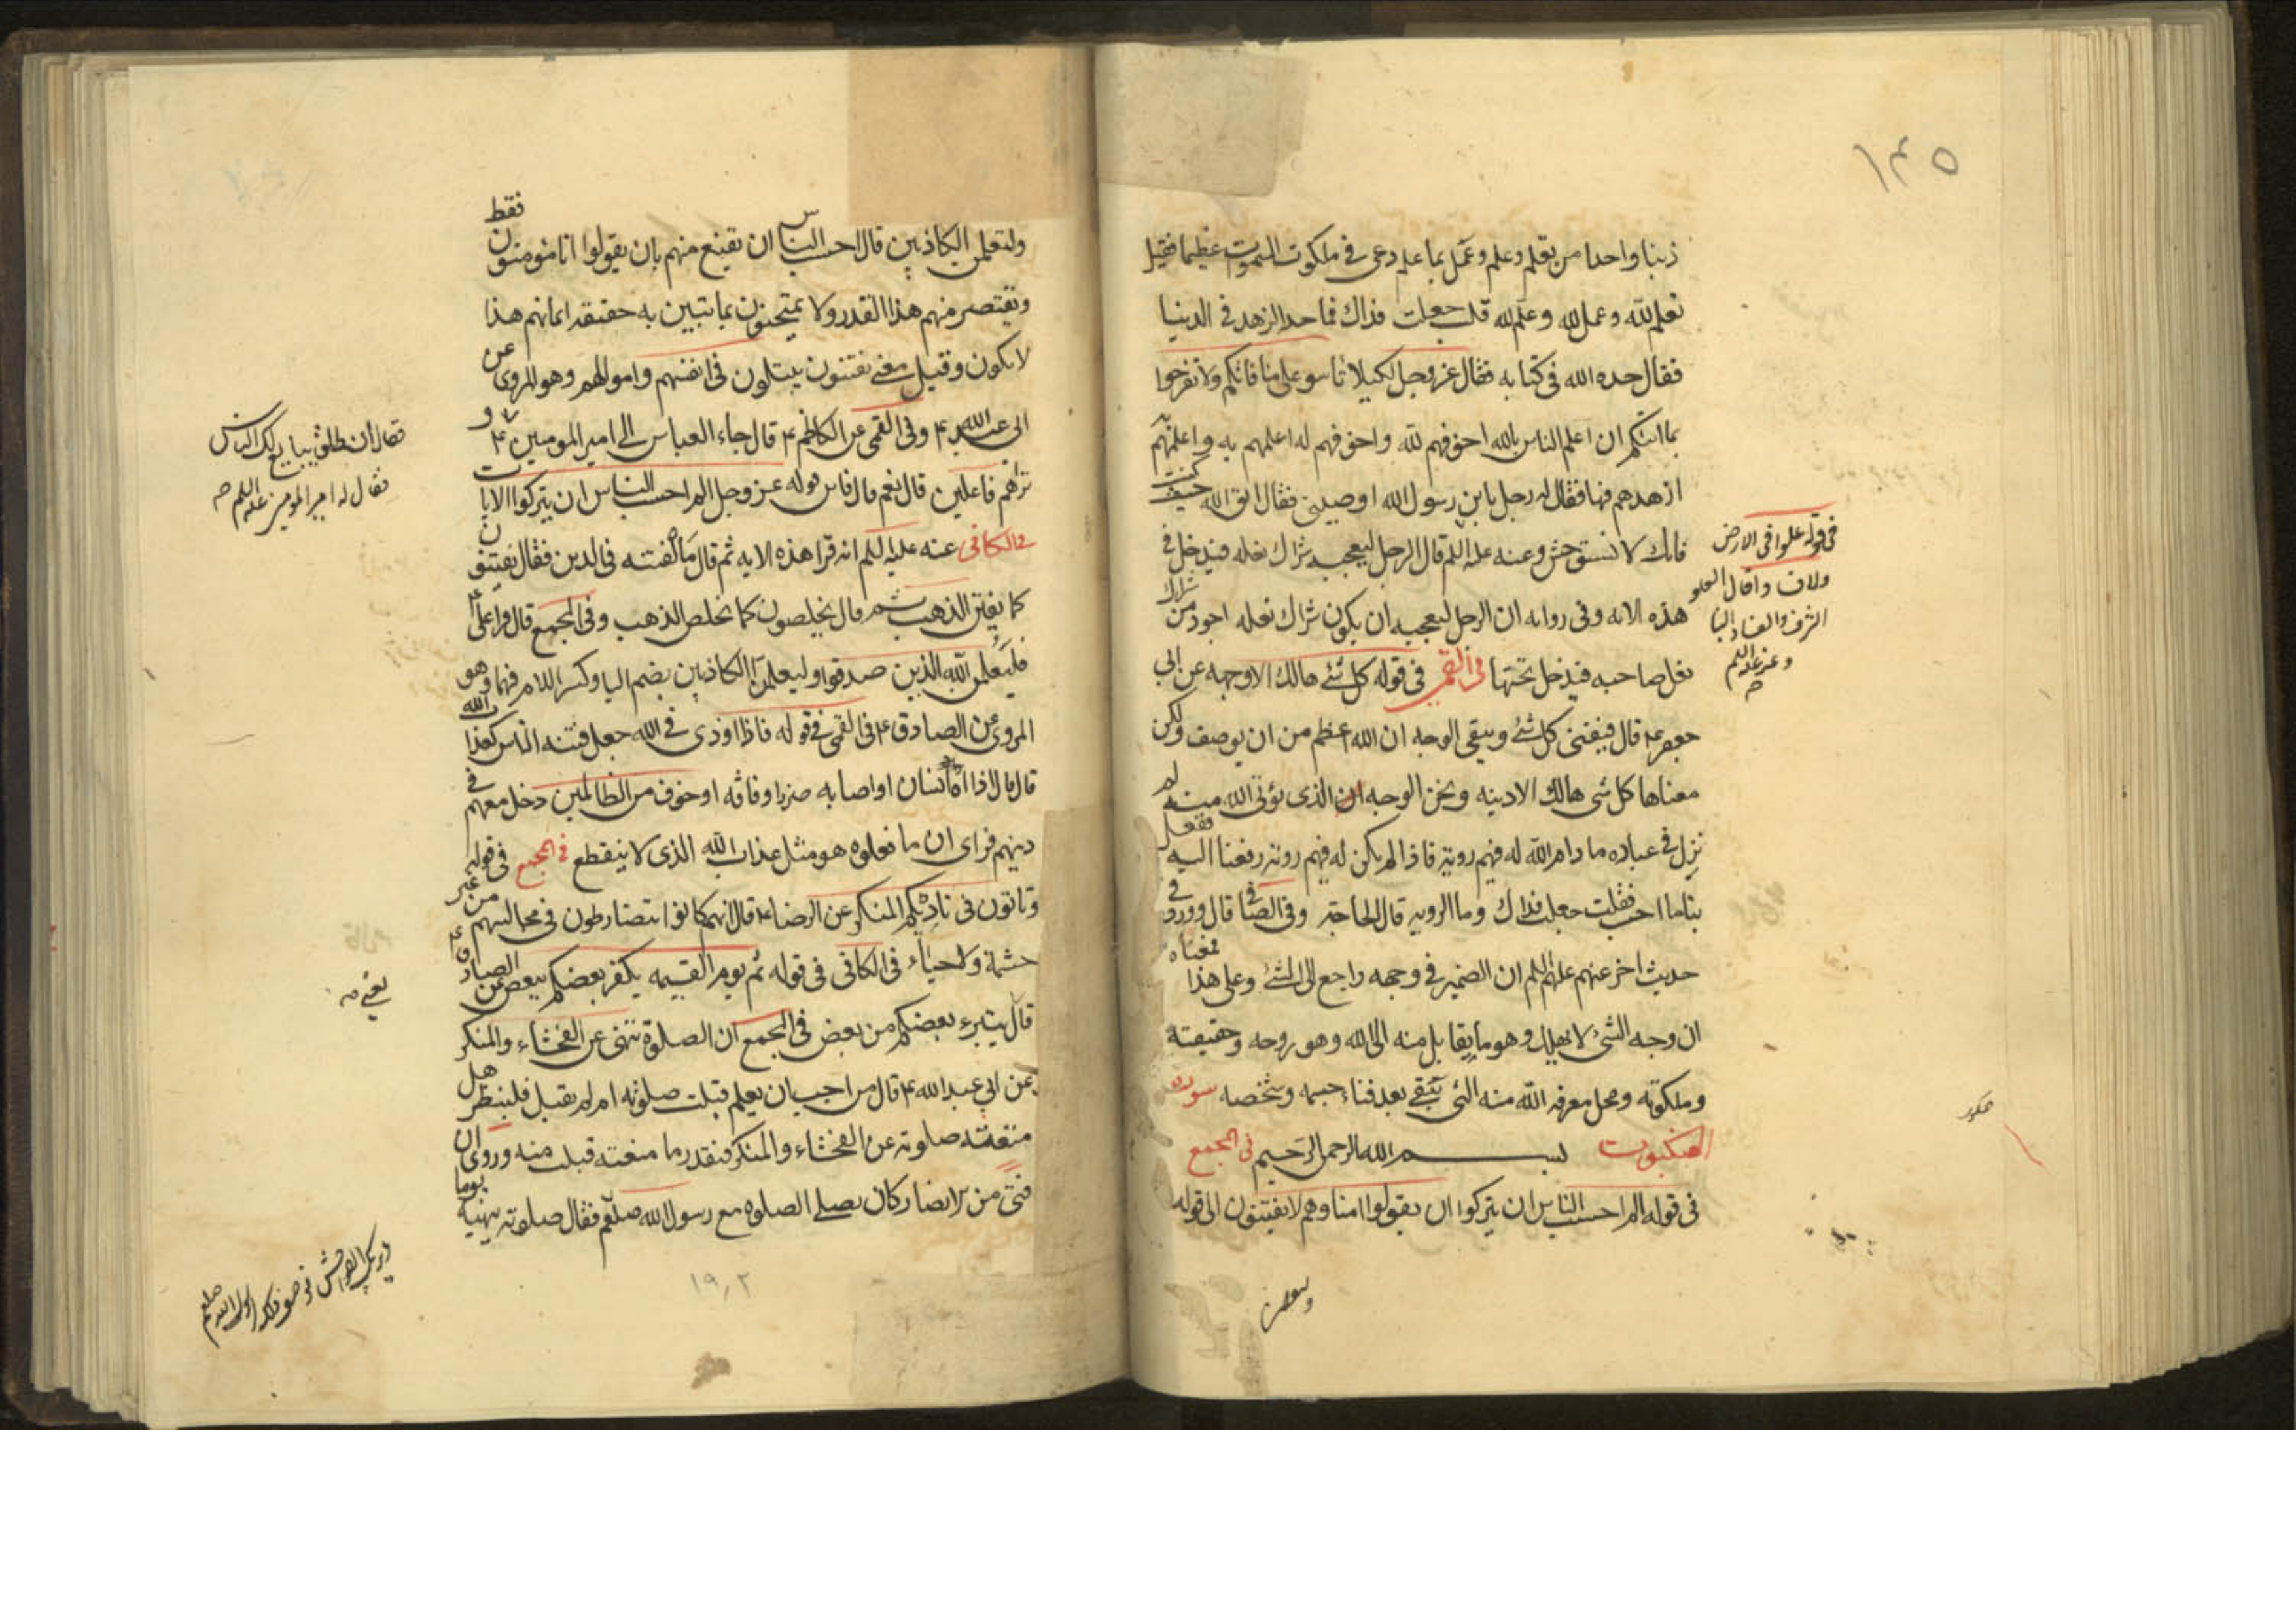 ١٣٥
ذنبا واحدا من تعلم وعلم وعمل بما علم دعى في ملكوت السموات عظيما فقيل
تعلم لله وعمل لله وعلم لله قلت جعلت فداك فما حد الزهد في الدنيا
فقال حده الله في كتابه فقال عز وجل لكيلا تاسوا على ما فاتكم ولا تفرحوا
بما اتيكم ان اعلم الناس بالله اخوفهم لله واخوفهم له اعلمهم به واعلمهم به
ازهدهم فيها فقال له رجل يا بن رسول الله اوصيني فقال اتق الله حيث كنت
فانك لا تستوحش وعنه عليه السلم قال الرجل ليعجبه شراك نعله فيدخل في
هذه الايه وفى روايه ان الرجل ليعجبه ان يكون شراك نعله اجود من شراك
نعل صاحبه فيدخل تحتها في القمي في قوله كل شئ هالك الا وجهه عن ابي
جعفر ع قال فيفنى كل شئ ويبقى الوجه ان الله اعظم من ان يوصف ولكن
معناها كل شى هالك الا دينه ونحن الوجه الذى يؤتى الله منه لم
نزل في عباده ما دام الله له فيهم روية فاذا لم يكن له فيهم روية رفعنا اليه ففعل
بنا ما احب فقلت جعلت فداك وما الرويه قال الحاجة وفى الصافى قال وورد في
حديث اخر عنهم عليهم السلم ان الضمير في وجهه راجع الى الشئ وعلى هذا فمعناه
ان وجه الشئ لا يهلك وهو ما يقابل منه الى الله وهو روحه وحقيقته
وملكوته ومحل معرفه الله منه التى تبقى بعد فناء جسمه وشخصه سورة
العنكبوت بسم الله الرحمن الرحيم في المجمع
في قوله الم احسب الناس ان يتركوا ان يقولوا امنا وهم لا يفتنون الى قوله
في قوله علوا في الارض
ولا ف
قال العلو
الشرف والفساد البنا
وعنه عليه السلم
وليعلمن
وليعلمن الكاذبين قال احسب الناس ان يقنع منهم بان يقولوا انا مؤمنون فقط
ويقتصر منهم هذا القدر ولا يمتحنون بما يتبين به حقيقه ايمانهم هذا
لا يكون وقيل معنى يفتنون يبتلون في انفسهم واموالهم وهو المروى عن
ابى عبد الله ع وفى القمى عن الكاظم ع قال جاء العباس الى امير المومنين ع
تراهم فاعلين قال نعم قال فاين قوله عز وجل الم احسب الناس ان يتركوا الايات
في الكافى عنه عليه السلم انه قرا هذه الايه ثم قال ما الفتنه في الدين فقال يفتنون
كما يفتن الذهب ثم قال يخلصون كما يخلص الذهب وفى المجمع قال قرا على ع
فليعلمن الله الذين صدقوا وليعلمن الكاذبين بضم اليا وكسر اللام فيهما وهو
المروى عن الصادق ع في القمى في قوله فاذا اوذى في الله جعل فتنه الناس كعذاب الله
قال قال اذا اذاه انسان او اصابه ضر او فاقه او خوف من الظالمين دخل معهم في
دينهم فراى ان ما فعلوه هو مثل عذاب الله الذى لا ينقطع في المجمع في قوله
وتاتون في ناديكم المنكر عن الرضا ع قال انهم كانوا يتضارطون في مجالسهم من غير
حشمة ولا حياء في الكافى في قوله ثم يوم القيمه يكفر بعضكم ببعض عن الصادق ع
قال يتبرء بعضكم من بعض في المجمع ان الصلوة تنهى عن الفحشاء والمنكر
عن ابي عبد الله ع قال من احب ان يعلم قبلت صلوته ام لم تقبل فلينظر هل
منعته صلوته عن الفحشاء والمنكر فبقدر ما منعته قبلت منه وروى ان
فتى من الانصار كان يصلى الصلوه مع رسول الله صلعم فقال صلوته تنهيه يوما
فقال انطلق يبايع لك الناس
فقال له امير المومنين عليه السلم
يعنى
ويرتكب الفواحش فوصف ذلك لرسول الله صلعم
١٩٠٢